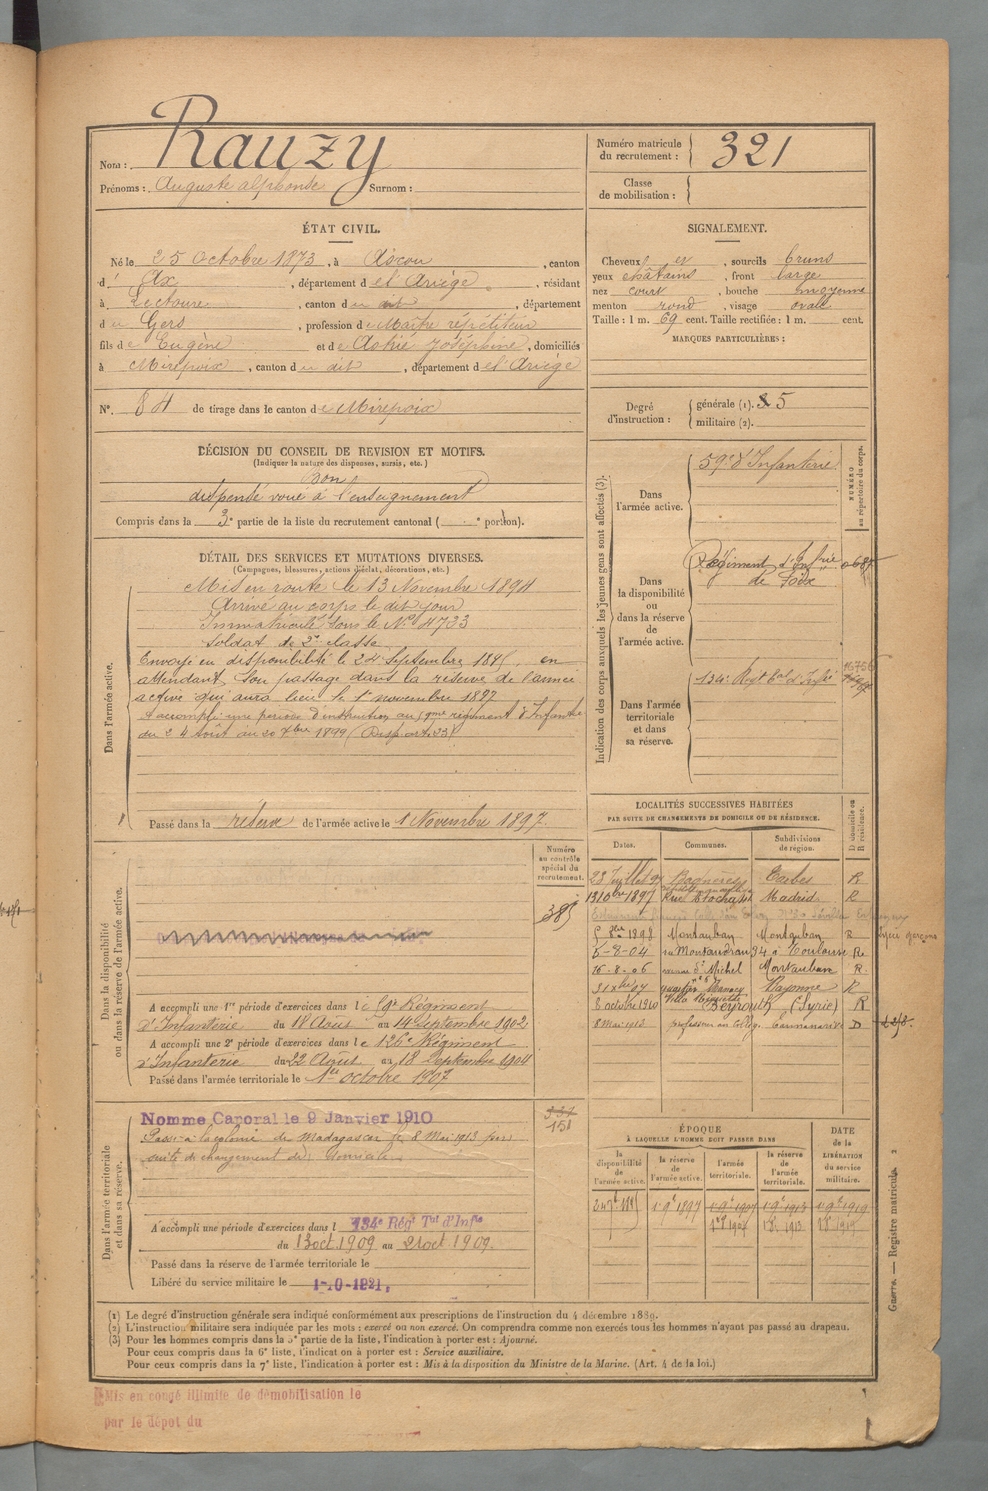 Nom : Rauzy
Prénoms : Auguste Alphonse Surnom :
Numéro matricule du recrutement : 321
Classe de mobilisation :
ÉTAT CIVIL.
Né le 25 Octobre 1873, à Ascou, canton
d' Ax, département de l'Ariège, résidant
à Lectoure, canton du dit, département
du Gers, profession de Maître répétiteur
fils de Eugène et de Astrié Joséphine, domiciliés
à Mirepoix, canton du dit, département de l'Ariège
N°. 84 de tirage dans le canton de Mirepoix
SIGNALEMENT.
Cheveux et sourcils bruns
yeux châtains, front large
nez court, bouche moyenne
menton rond, visage ovale
Taille : 1 m. 69 cent. Taille rectifiée : 1 m. cent.
MARQUES PARTICULIÈRES :
Degré d'instruction : générale (1). 5
militaire (2).
DÉCISION DU CONSEIL DE REVISION ET MOTIFS.
(Indiquer la nature des dispenses, sursis, etc.)
Bon
dispensé voué à l'enseignement
Compris dans la 3e partie de la liste du recrutement cantonal ( portion).
DÉTAIL DES SERVICES ET MUTATIONS DIVERSES.
(Campagnes, blessures, actions d'éclat, décorations, etc.)
Dans l'armée active.
Mis en route le 13 Novembre 1894
Arrivé au corps le dit jour
Immatriculé sous le N° 4723
Soldat de 2e classe
Envoyé en disponibilité le 24 Septembre 1895, en
attendant son passage dans la réserve de l'armée
active qui aura lieu le 1er novembre 1897
A accompli une période d'instruction au régiment d'Infanterie
du 24 Août au 20 7bre 1899
Passé dans la réserve de l'armée active le 1 Novembre 1897
Indication des corps auxquels les jeunes gens sont affectés (3).
NUMÉRO au répertoire du corps.
Dans l'armée active.
59e d'Infanterie
Dans la disponibilité ou dans la réserve de l'armée active.
Régiment d'Infrie
de Foix
Dans l'armée territoriale et dans sa réserve.
134e Regt
LOCALITÉS SUCCESSIVES HABITÉES
PAR SUITE DE CHANGEMENTS DE DOMICILE OU DE RÉSIDENCE.
Dates. Communes. Subdivisions de région. D domicile ou R résidence.
23 Juillet 97 Bagnères Tarbes R
1897 Rue Madrid R
1898 Montauban Montauban R
5-8-04 34 à Toulouse R
16-8-06 St Michel Montauban R.
Bayonne R
8 octobre 1910 Beyrouth (Syrie) R
8 mai 1913 professeur au collège Tananarive D
Dans la disponibilité ou dans la réserve de l'armée active.
Numéro au contrôle spécial du recrutement.
385
A accompli une 1re période d'exercices dans le 59e Régiment
d'Infanterie du 18 Août au 14 Septembre 1902
A accompli une 2e période d'exercices dans le 126e Régiment
d'Infanterie du 22 Août au 18 Septembre 1904
Passé dans l'armée territoriale le 1er octobre 1907
Dans l'armée territoriale et dans sa réserve.
Nomme Caporal le 9 Janvier 1910
151
Passé à la colonie de Madagascar le 8 Mai 1913 par
suite de changement de domicile
A accompli une période d'exercices dans l 134e Régt Tal d'Infie
du 13 oct 1909 au 21 oct 1909.
Passé dans la réserve de l'armée territoriale le
Libéré du service militaire le 1-10-1921.
ÉPOQUE
À LAQUELLE L'HOMME DOIT PASSER DANS
la disponibilité de l'armée active.
la réserve de l'armée active.
l'armée territoriale.
la réserve de l'armée territoriale.
DATE de la LIBÉRATION du service militaire.
1895 1897 1907 1913 1919
1907 1913 1919
Guerre. — Registre matricule. 2
(1) Le degré d'instruction générale sera indiqué conformément aux prescriptions de l'instruction du 4 décembre 1889.
(2) L'instruction militaire sera indiquée par les mots : exercé ou non exercé. On comprendra comme non exercés tous les hommes n'ayant pas passé au drapeau.
(3) Pour les hommes compris dans la 5e partie de la liste, l'indication à porter est : Ajourné.
Pour ceux compris dans la 6e liste, l'indication à porter est : Service auxiliaire.
Pour ceux compris dans la 7e liste, l'indication à porter est : Mis à la disposition du Ministre de la Marine. (Art. 4 de la loi.)
Mis en congé illimité de démobilisation le
par le dépôt du